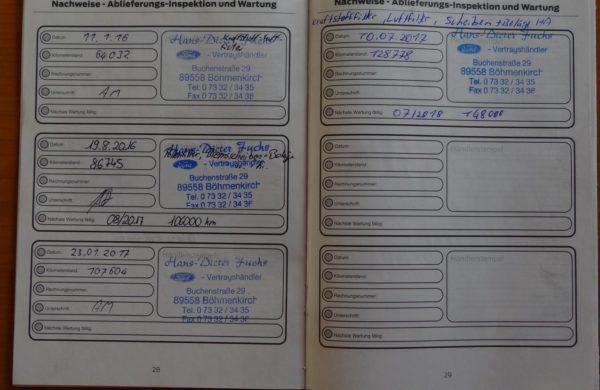 Nachweise - Ablieferungs-Inspektion und Wartung
Datum: 11.1.16
Kilometerstand: 64032
Rechnungsnummer:
Unterschrift: AM
Nächste Wartung fällig:
Hans-Dieter Fuchs
Ford - Vertragshändler
Buchenstraße 29
89558 Böhmenkirch
Tel. 0 73 32 / 34 35
Fax 0 73 32 / 34 36
Datum: 19.8.2016
Kilometerstand: 86745
Rechnungsnummer:
Unterschrift:
Nächste Wartung fällig: 08/2017 106000 km
Hans-Dieter Fuchs
Bremsscheiben + Beläge
Ford - Vertragshändler
Buchenstraße 29
89558 Böhmenkirch
Tel. 0 73 32 / 34 35
Fax 0 73 32 / 34 36
Datum: 23.01.2017
Kilometerstand: 107604
Rechnungsnummer:
Unterschrift: AM
Nächste Wartung fällig:
Händlerstempel
Hans-Dieter Fuchs
Ford - Vertragshändler
Buchenstraße 29
89558 Böhmenkirch
Tel. 0 73 32 / 34 35
Fax 0 73 32 / 34 36
28
Nachweise - Ablieferungs-Inspektion und Wartung
Kraftstofffilter, Luftfilter, Scheiben + Beläge HA
Datum: 10.07.2017
Kilometerstand: 128778
Rechnungsnummer:
Unterschrift:
Nächste Wartung fällig: 07/2018 148000
Hans-Dieter Fuchs
Ford - Vertragshändler
Buchenstraße 29
89558 Böhmenkirch
Tel. 0 73 32 / 34 35
Fax 0 73 32 / 34 36
Datum:
Kilometerstand:
Rechnungsnummer:
Unterschrift:
Nächste Wartung fällig:
Händlerstempel
Datum:
Kilometerstand:
Rechnungsnummer:
Unterschrift:
Nächste Wartung fällig:
Händlerstempel
29